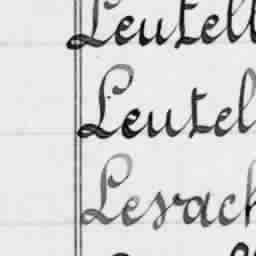 Leutell
Leutel
Levach